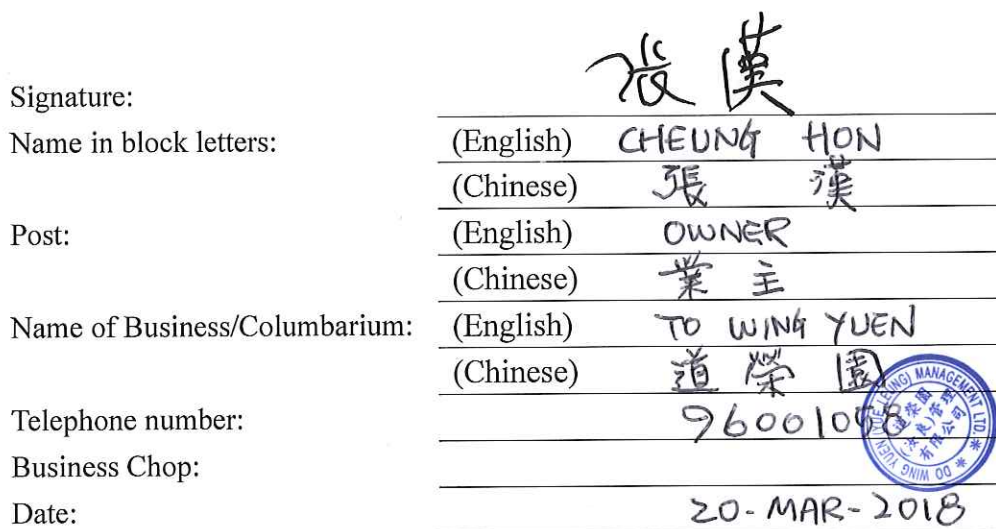 張漢
Signature:
Name in block letters: (English) CHEUNG HON
(Chinese) 張 漢
Post: (English) OWNER
(Chinese) 業主
Name of Business/Columbarium: (English) TO WING YUEN
(Chinese) 道榮園
Telephone number: 96001058
Business Chop:
DO WING YUEN (YUE LEUNG) MANAGEMENT LTD.
道榮園
(汝良)管理
有限公司
Date: 20-MAR-2018